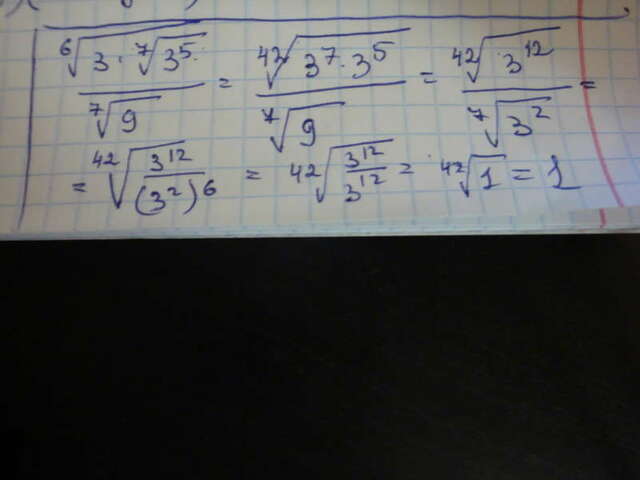 ⁶√(3 · ⁷√(3⁵)) / ⁷√9 = ⁴²√(3⁷ · 3⁵) / ⁷√9 = ⁴²√(3¹²) / ⁷√(3²) =
= ⁴²√(3¹² / (3²)⁶) = ⁴²√(3¹² / 3¹²) = ⁴²√1 = 1